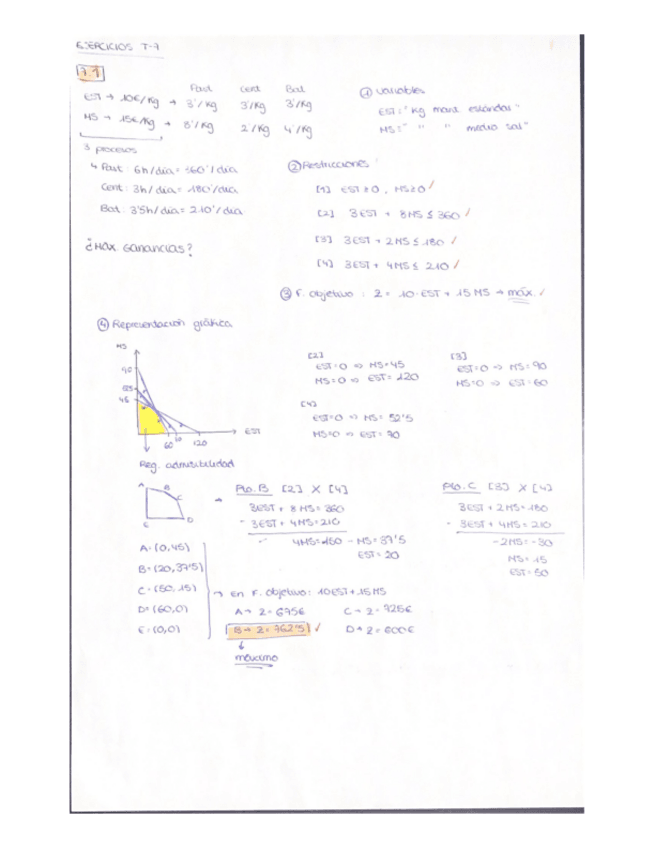 EJERCICIOS T-7
7.1
Past Cent Bat
EST → 10€/Kg → 3'/Kg 3'/Kg 3'/Kg
MS → 15€/Kg → 8'/Kg 2'/Kg 4'/Kg
3 procesos
↳ Past: 6h/dia = 360'/dia
Cent: 3h/dia = 180'/dia
Bat: 3'5h/dia = 210'/dia
¿MAX GANANCIAS?
① Variables
EST = "Kg mant. estándar"
MS = " " " medio sal"
② Restricciones
[1] EST ≥ 0, MS ≥ 0 ✓
[2] 3EST + 8MS ≤ 360 ✓
[3] 3EST + 2MS ≤ 180 ✓
[4] 3EST + 4MS ≤ 210 ✓
③ F. objetivo: Z = 10·EST + 15MS → máx. ✓
④ Representación gráfica
MS
90
45
EST
60
120
Reg. admisibilidad
[2]
EST=0 ⇒ MS=45
MS=0 ⇒ EST=120
[3]
EST=0 ⇒ MS=90
MS=0 ⇒ EST=60
[4]
EST=0 ⇒ MS=52'5
MS=0 ⇒ EST=70
A B C D E
→ Pto. B [2] X [4]
3EST + 8MS = 360
- 3EST + 4MS = 210
4MS=150 → MS=37'5
EST=20
Pto. C [3] X [4]
3EST + 2MS = 180
- 3EST + 4MS = 210
-2MS = -30
MS = 15
EST = 50
A = (0,45)
B = (20,37'5)
C = (50,15)
D = (60,0)
E = (0,0)
→ En F. objetivo: 10EST + 15MS
A → Z = 675€ C → Z = 725€
B → Z = 762'5 ✓ D → Z = 600€
↓
máximo